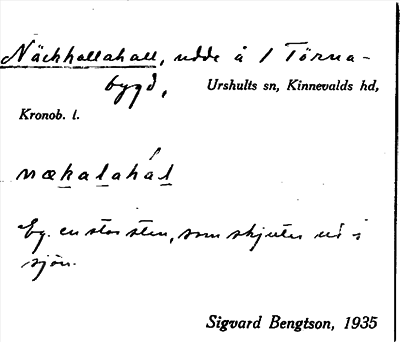 Näckhallahall, udde å 1 Törna-
bygd,
Urshults sn, Kinnevalds hd,
Kronob. l.
nækalahál
Eg. en stor sten, som skjuter ut i
sjön.
Sigvard Bengtson, 1935